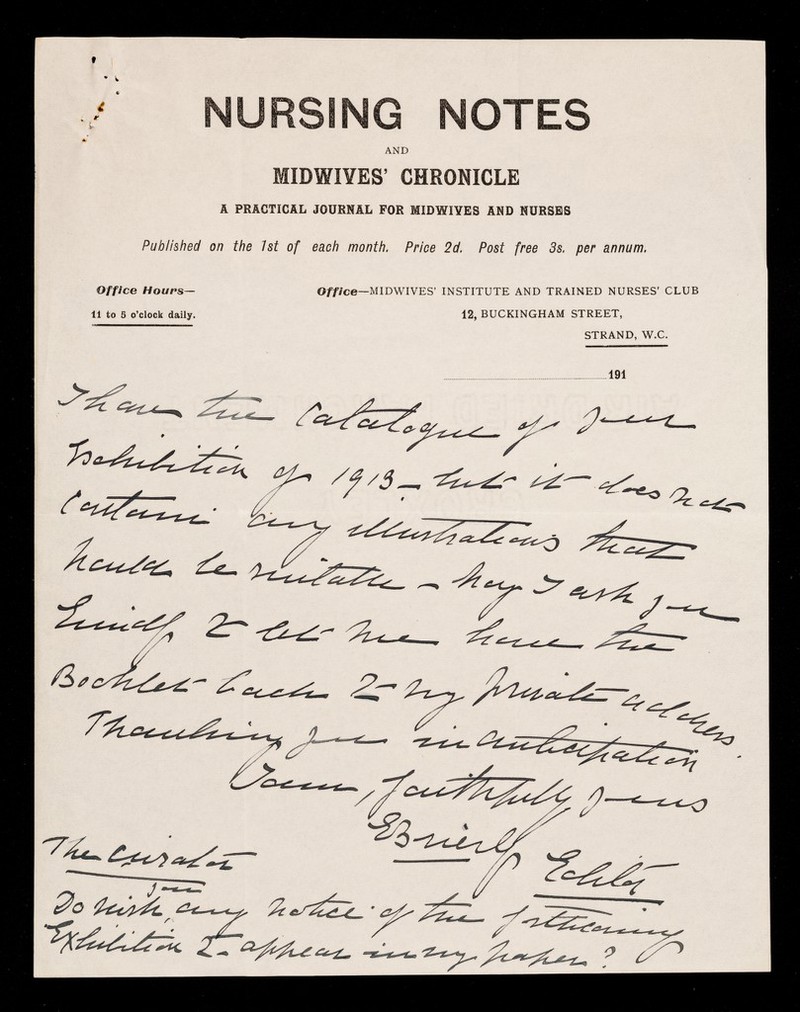 NURSING NOTES
AND
MIDWIVES' CHRONICLE
A PRACTICAL JOURNAL FOR MIDWIVES AND NURSES
Published on the 1st of each month. Price 2d. Post free 3s. per annum.
Office Hours—
11 to 5 o'clock daily.
Office—MIDWIVES' INSTITUTE AND TRAINED NURSES' CLUB
12, BUCKINGHAM STREET,
STRAND, W.C.
191
I have the Catalogue of your
Exhibition of 1913 - but it does not
contain any illustrations that
would be suitable - May I ask you
kindly to let me have the
Booklet back to my private address.
Thanking you in anticipation
I am, faithfully yours
EBrierly
Editor
The Curator
Do wish you any notice of the forthcoming
Exhibition to appear in my paper?